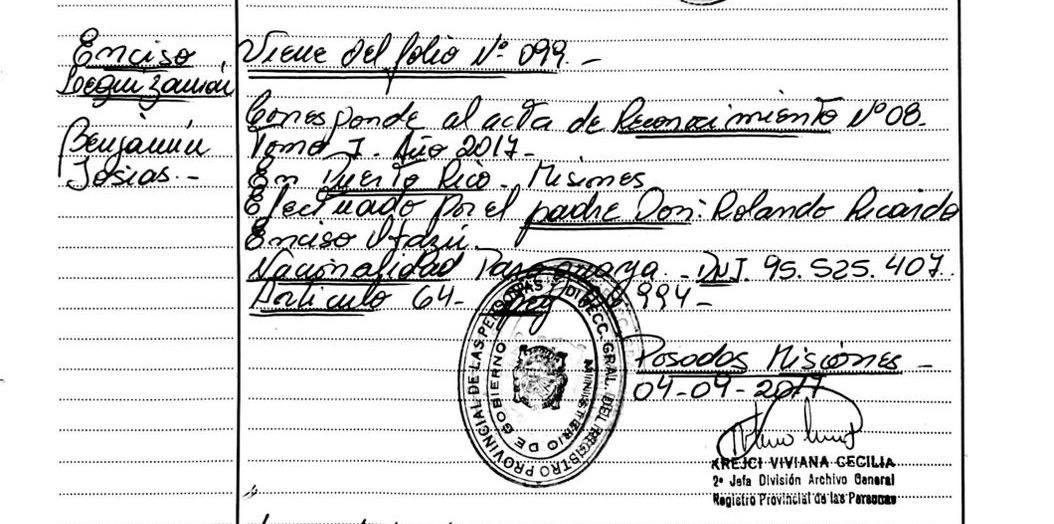 Enciso
Leguizamón
Benjamín
Josias.-
Viene del folio Nº 099.-
Corresponde al acta de Reconocimiento Nº 08.
Tomo I. Año 2017-
En Puerto Rico - Misiones
Efectuado por el padre Don: Rolando Ricardo
Enciso
Nacionalidad Paraguaya - DNI. 95.525.407.
Artículo 64- Ley 994-
Posadas Misiones -
04-09-2017
KREJCI VIVIANA CECILIA
2ª Jefa División Archivo General
Registro Provincial de las Personas
DIRECC. GRAL. DEL REGISTRO PROVINCIAL DE LAS PERSONAS
MINISTERIO DE GOBIERNO